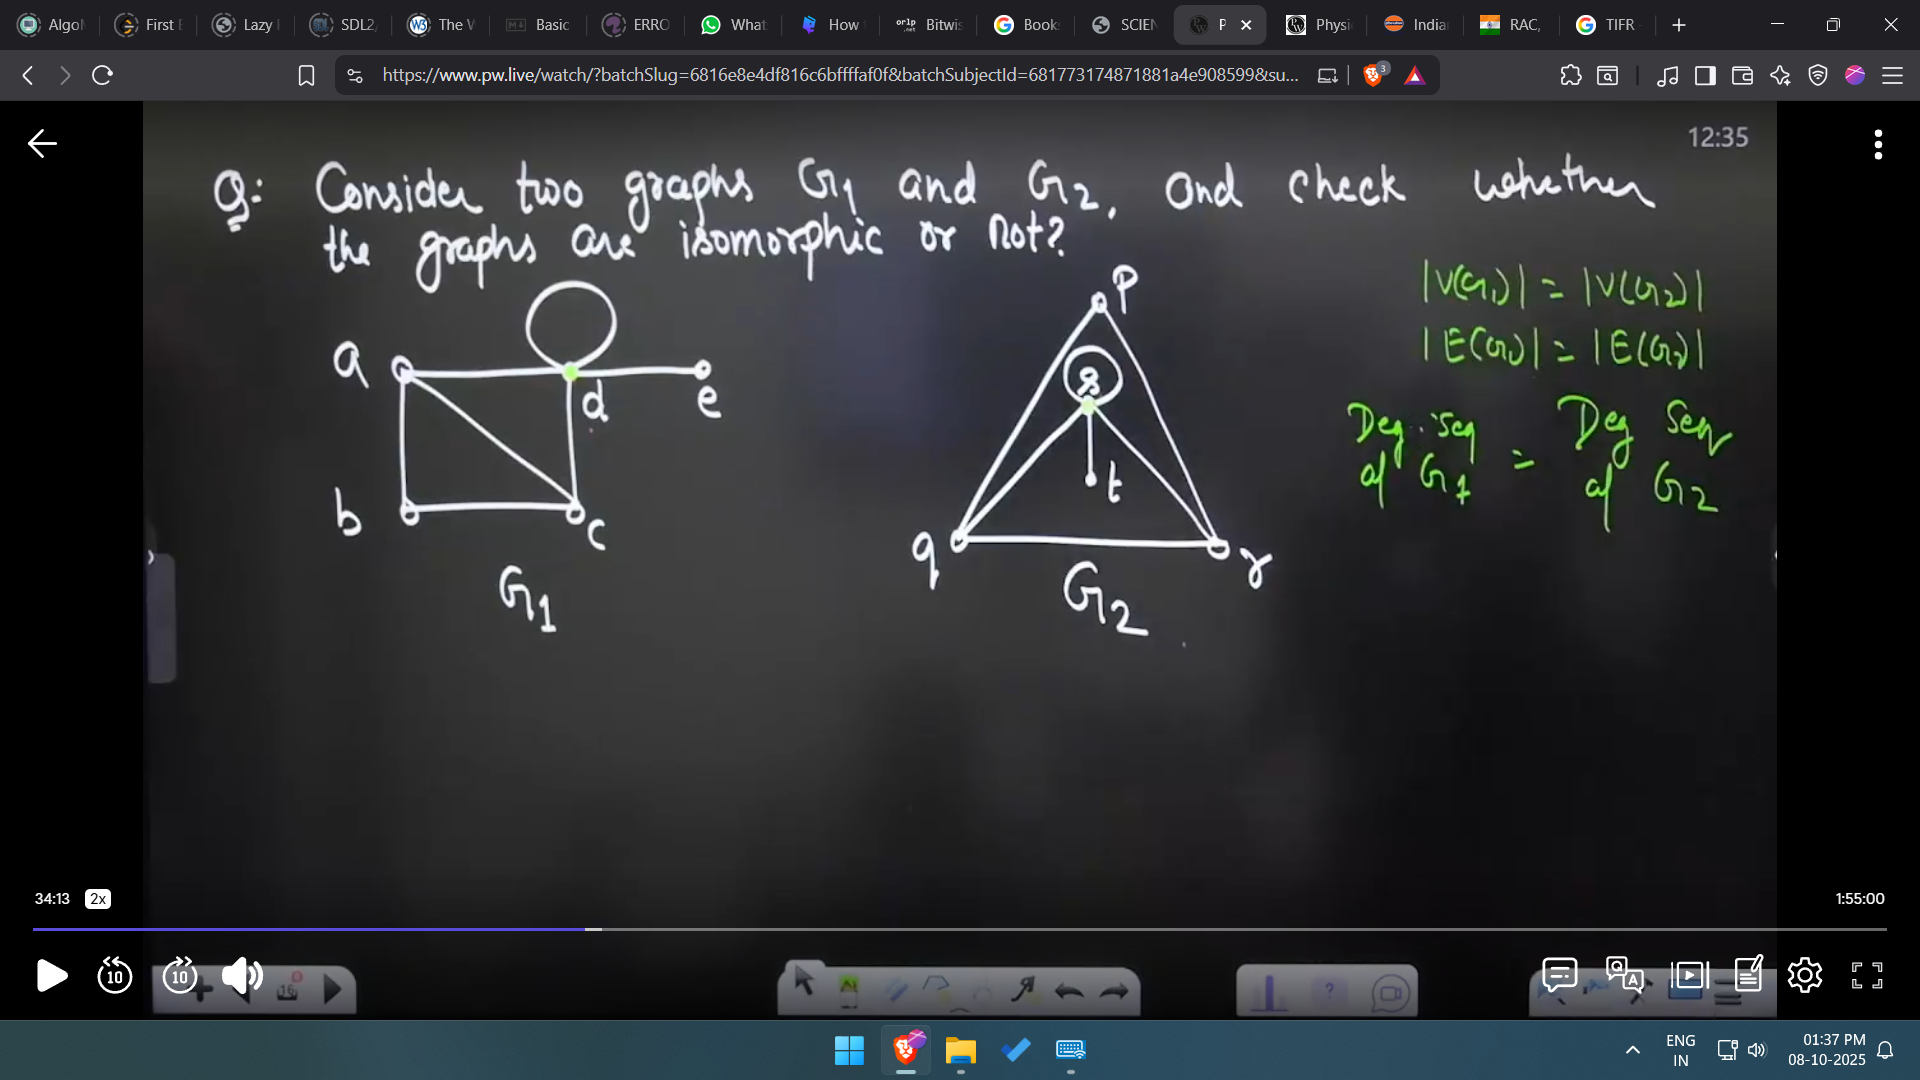 Algo
First E
Lazy
SDL2
The W
Basic
ERRO
What
How
Bitwis
Book
SCIEN
P
Physi
India
RAC,
TIFR
https://www.pw.live/watch/?batchSlug=6816e8e4df816c6bffffaf0f&batchSubjectId=681773174871881a4e908599&su...
3
12:35
Q: Consider two graphs G1 and G2, and check whether
the graphs are isomorphic or not?
|V(G1)| = |V(G2)|
|E(G1)| = |E(G2)|
Deg. Seq of G1 = Deg Seq of G2
a
d
e
b
c
G1
P
s
t
q
r
G2
34:13 2x
1:55:00
10
10
16
ENG
IN
01:37 PM
08-10-2025